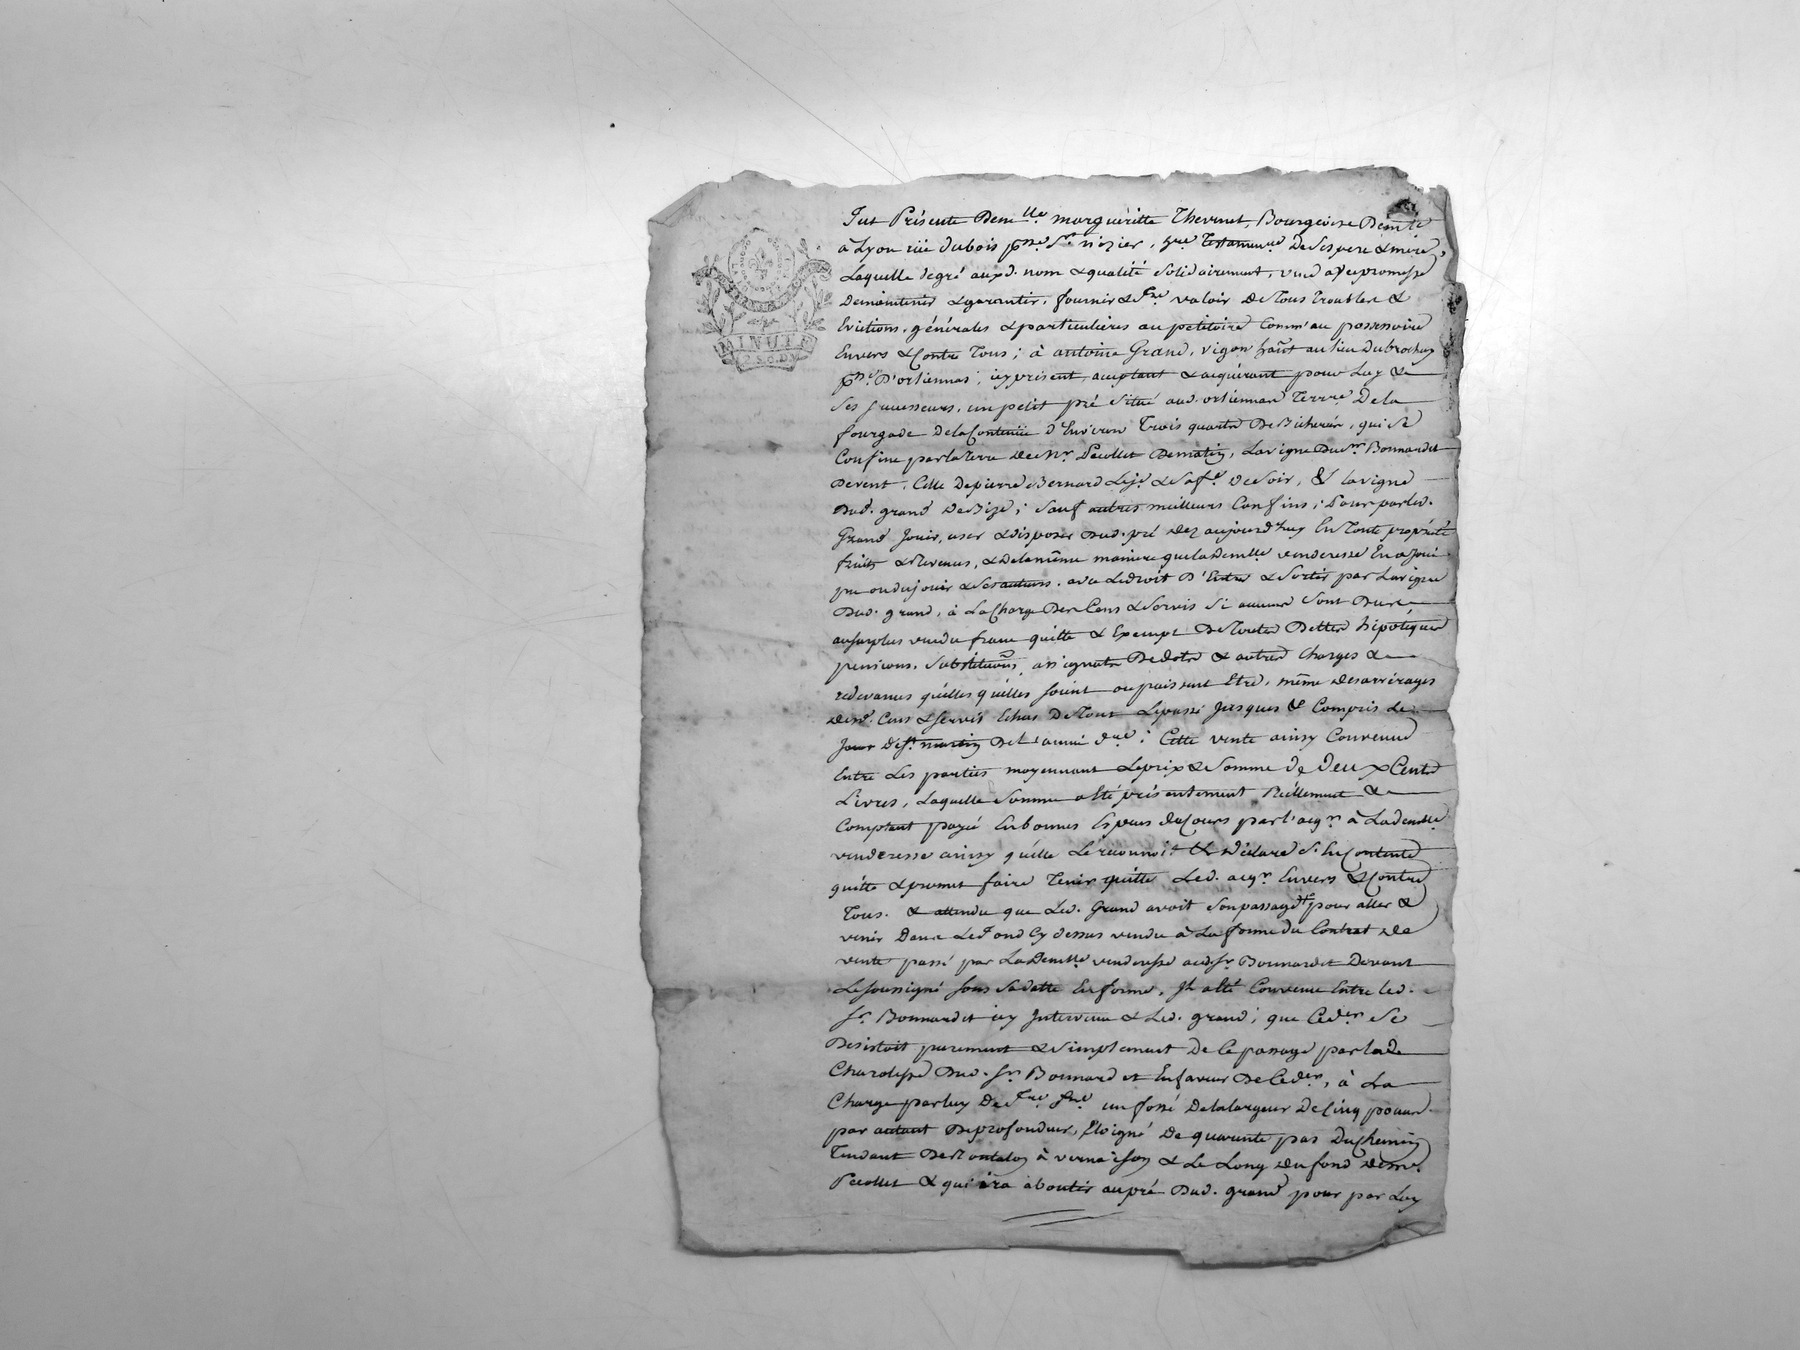 MINUTE
2.S.6.D
Fut Présente Demlle margueritte Thevenet, Bourgeoise Demte
à Lyon rüe dubois psse St nizier, hre Testamenre De Ses pere & mere,
Laquelle de gré aux d. nom & qualité Solidairement, vend avec promesse
De maintenir & garentir, fournir & fre valoir De Tous Troubles &
Evictions, générales & particulières au petitoire Comm'au possessoire
Envers & Contre Tous; à antoine Grand, vigon hañt au lieu du brochay
psse D'orliennas, icy present, acceptant & acquérant pour Luy &
Ses Successeurs, un petit pré Situé aud. orliennas Terre De la
fourgade De la Contenüe d'Environ Trois quarts De Bicherée, qui Se
Confine par la Terre de Mr Pecollet De matin, La vigne Du Sr Bonnardet
De vent, Celle De pierre Bernard Leje & Sa fe de Soir, & la vigne
Dud. grand De Bize; Sauf autres meilleurs Confins; Pour par led.
Grand Jouir, user & disposer Dud. pré dez aujourd'huy En Toute propriété
fruits & Revenus, & De la même maniere que la Demlle venderesse En a Joui
pu ou du jouir & Ses auteurs, avec Le droit D'Entrer & Sortir par La vigne
Dud. grand, à La Charge Des Cens & Servis Si aucuns Sont Dus
au surplus vendu franc quitte & Exempt De Toutes Dettes hipotéques
pensions, Substitutions, assignats De dots & autres Charges &
redevances quelles qu'elles soient ou puissent Etre, même des arrérages
desd. Cens & Servis Echus De Tout Le passé Jusques & Compris Le
Jour De St martin De L'année dre; Cette vente ainsy Convenue
Entre Les parties moyennant Le prix & Somme de Deux Cents
Livres, Laquelle Somme a Eté présentement Réellement &
Comptant payée En bonnes Espèces du Cours par l'acqr à La demlle
venderesse ainsy qu'elle Le reconnoit & déclare S'En Contente
quitte & promet faire Tenir quitte Led. acqr Envers & Contre
Tous. & attendu que Led. Grand avoit Son passage pour aller &
venir Dans Led. fond Cy dessus vendu à La forme du Contrat de
vente passé par La Demlle venderesse aud. Sr Bonnardet Devant
Le soussigné Sous Sa datte En forme, Il a Eté Convenu Entre Led.
Sr Bonnardet icy Intervenu & Led. grand; que Ce der Se
Desistoit purement & Simplement De Ce passage par la de
Dud. Sr Bonnardet En faveur De Ce der, à La
Charge par luy De fre fre un fossé De la largeur De Cinq pouces
par autant De profondeur, Eloigné De quarante pas Du Chemin
Tendant De Montalon à vernaison & Le Long du fond de mr
Pecollet & qui ira aboutir au pré Dud. grand pour par Luy